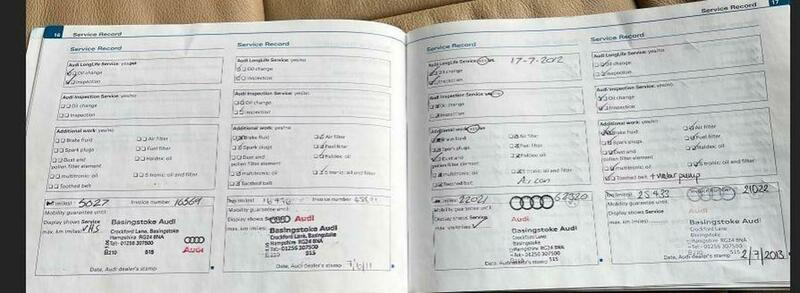 16 Service Record
Service Record
Audi LongLife Service: yes/no
Oil change
Inspection
Audi Inspection Service: yes/no
Oil change
Inspection
Additional work: yes/no
Brake fluid
Air filter
Spark plugs
Fuel filter
Dust and
pollen filter element
Haldex: oil
multitronic: oil
S tronic: oil and filter
Toothed belt
miles) 5027 Invoice number 16569
Mobility guarantee until
Display shows Service
max. km (miles)
VHS
Basingstoke Audi
Crockford Lane, Basingstoke
Hampshire RG24 8NA
Tel: 01256 307500
B210 515
Audi
Date, Audi dealer's stamp
Service Record
Audi LongLife Service: yes/no
Oil change
Inspection
Audi Inspection Service: yes/no
Oil change
Inspection
Additional work: yes/no
Brake fluid
Air filter
Spark plugs
Fuel filter
Dust and
pollen filter element
Haldex: oil
multitronic: oil
S tronic: oil and filter
Toothed belt
Invoice number
Mobility guarantee until
Display shows
max. km (miles)
Audi
Basingstoke Audi
Crockford Lane, Basingstoke
Hampshire RG24 8NA
Tel: 01256 307500
515
Date, Audi dealer's stamp
Service Record
Audi LongLife Service: yes/no 17-7-2012
Oil change
Inspection
Audi Inspection Service: yes/no
Oil change
Inspection
Additional work: yes/no
Brake fluid
Air filter
Spark plugs
Fuel filter
Dust and
pollen filter element
Haldex: oil
multitronic: oil
S tronic: oil and filter
Toothed belt
Air con
miles) 22021
62320
Mobility guarantee until
Display shows Service
max. km (miles)
Audi
Basingstoke Audi
Crockford Lane,
Basingstoke
Hampshire RG24 8NA
Tel: 01256 307500
515
Date, Audi dealer's stamp
Service Record 17
Service Record
Audi LongLife Service: yes/no
Oil change
Inspection
Audi Inspection Service: yes/no
Oil change
Inspection
Additional work: yes/no
Brake fluid
Air filter
Spark plugs
Fuel filter
Dust and
pollen filter element
Haldex: oil
multitronic: oil
S tronic: oil and filter
Toothed belt + water pump
25433
21022
Mobility guarantee until
Display shows Service
max. km (miles)
Audi
Basingstoke Audi
Crockford Lane, Basingstoke
Hampshire RG24 8NA
Tel: 01256 307500
515
Date, Audi dealer's stamp 2/7/2013